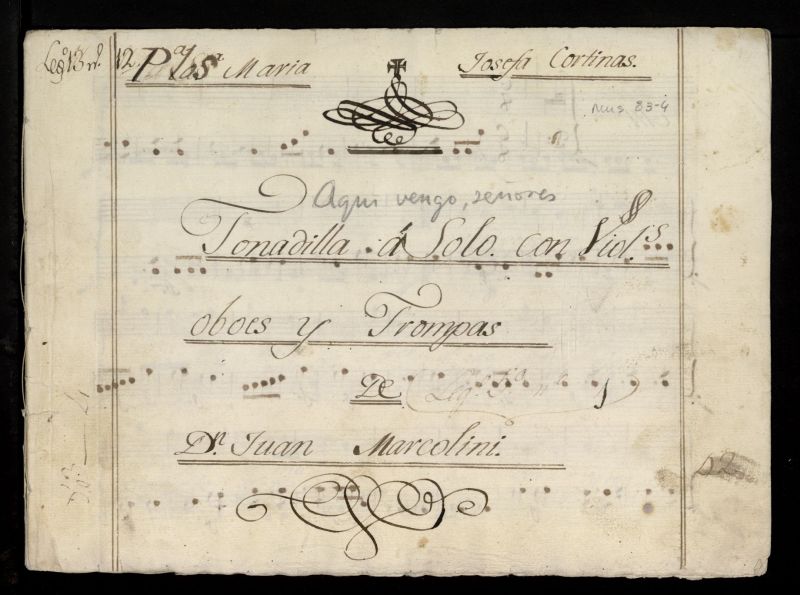 Legº 13 nº 12. Pª la Sª Maria Josefa Cortinas.
Mus 83-4
Aqui vengo, señores
Tonadilla á Solo. con Viol.s
oboes y Trompas
De
Dn. Juan Marcolini.